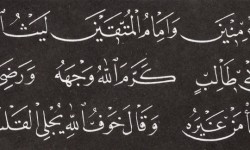 ومنين وامام المتقين ليث ا
طالب كرم الله وجهه ورضي
من غيره وقال خوف الله يجلي القلب